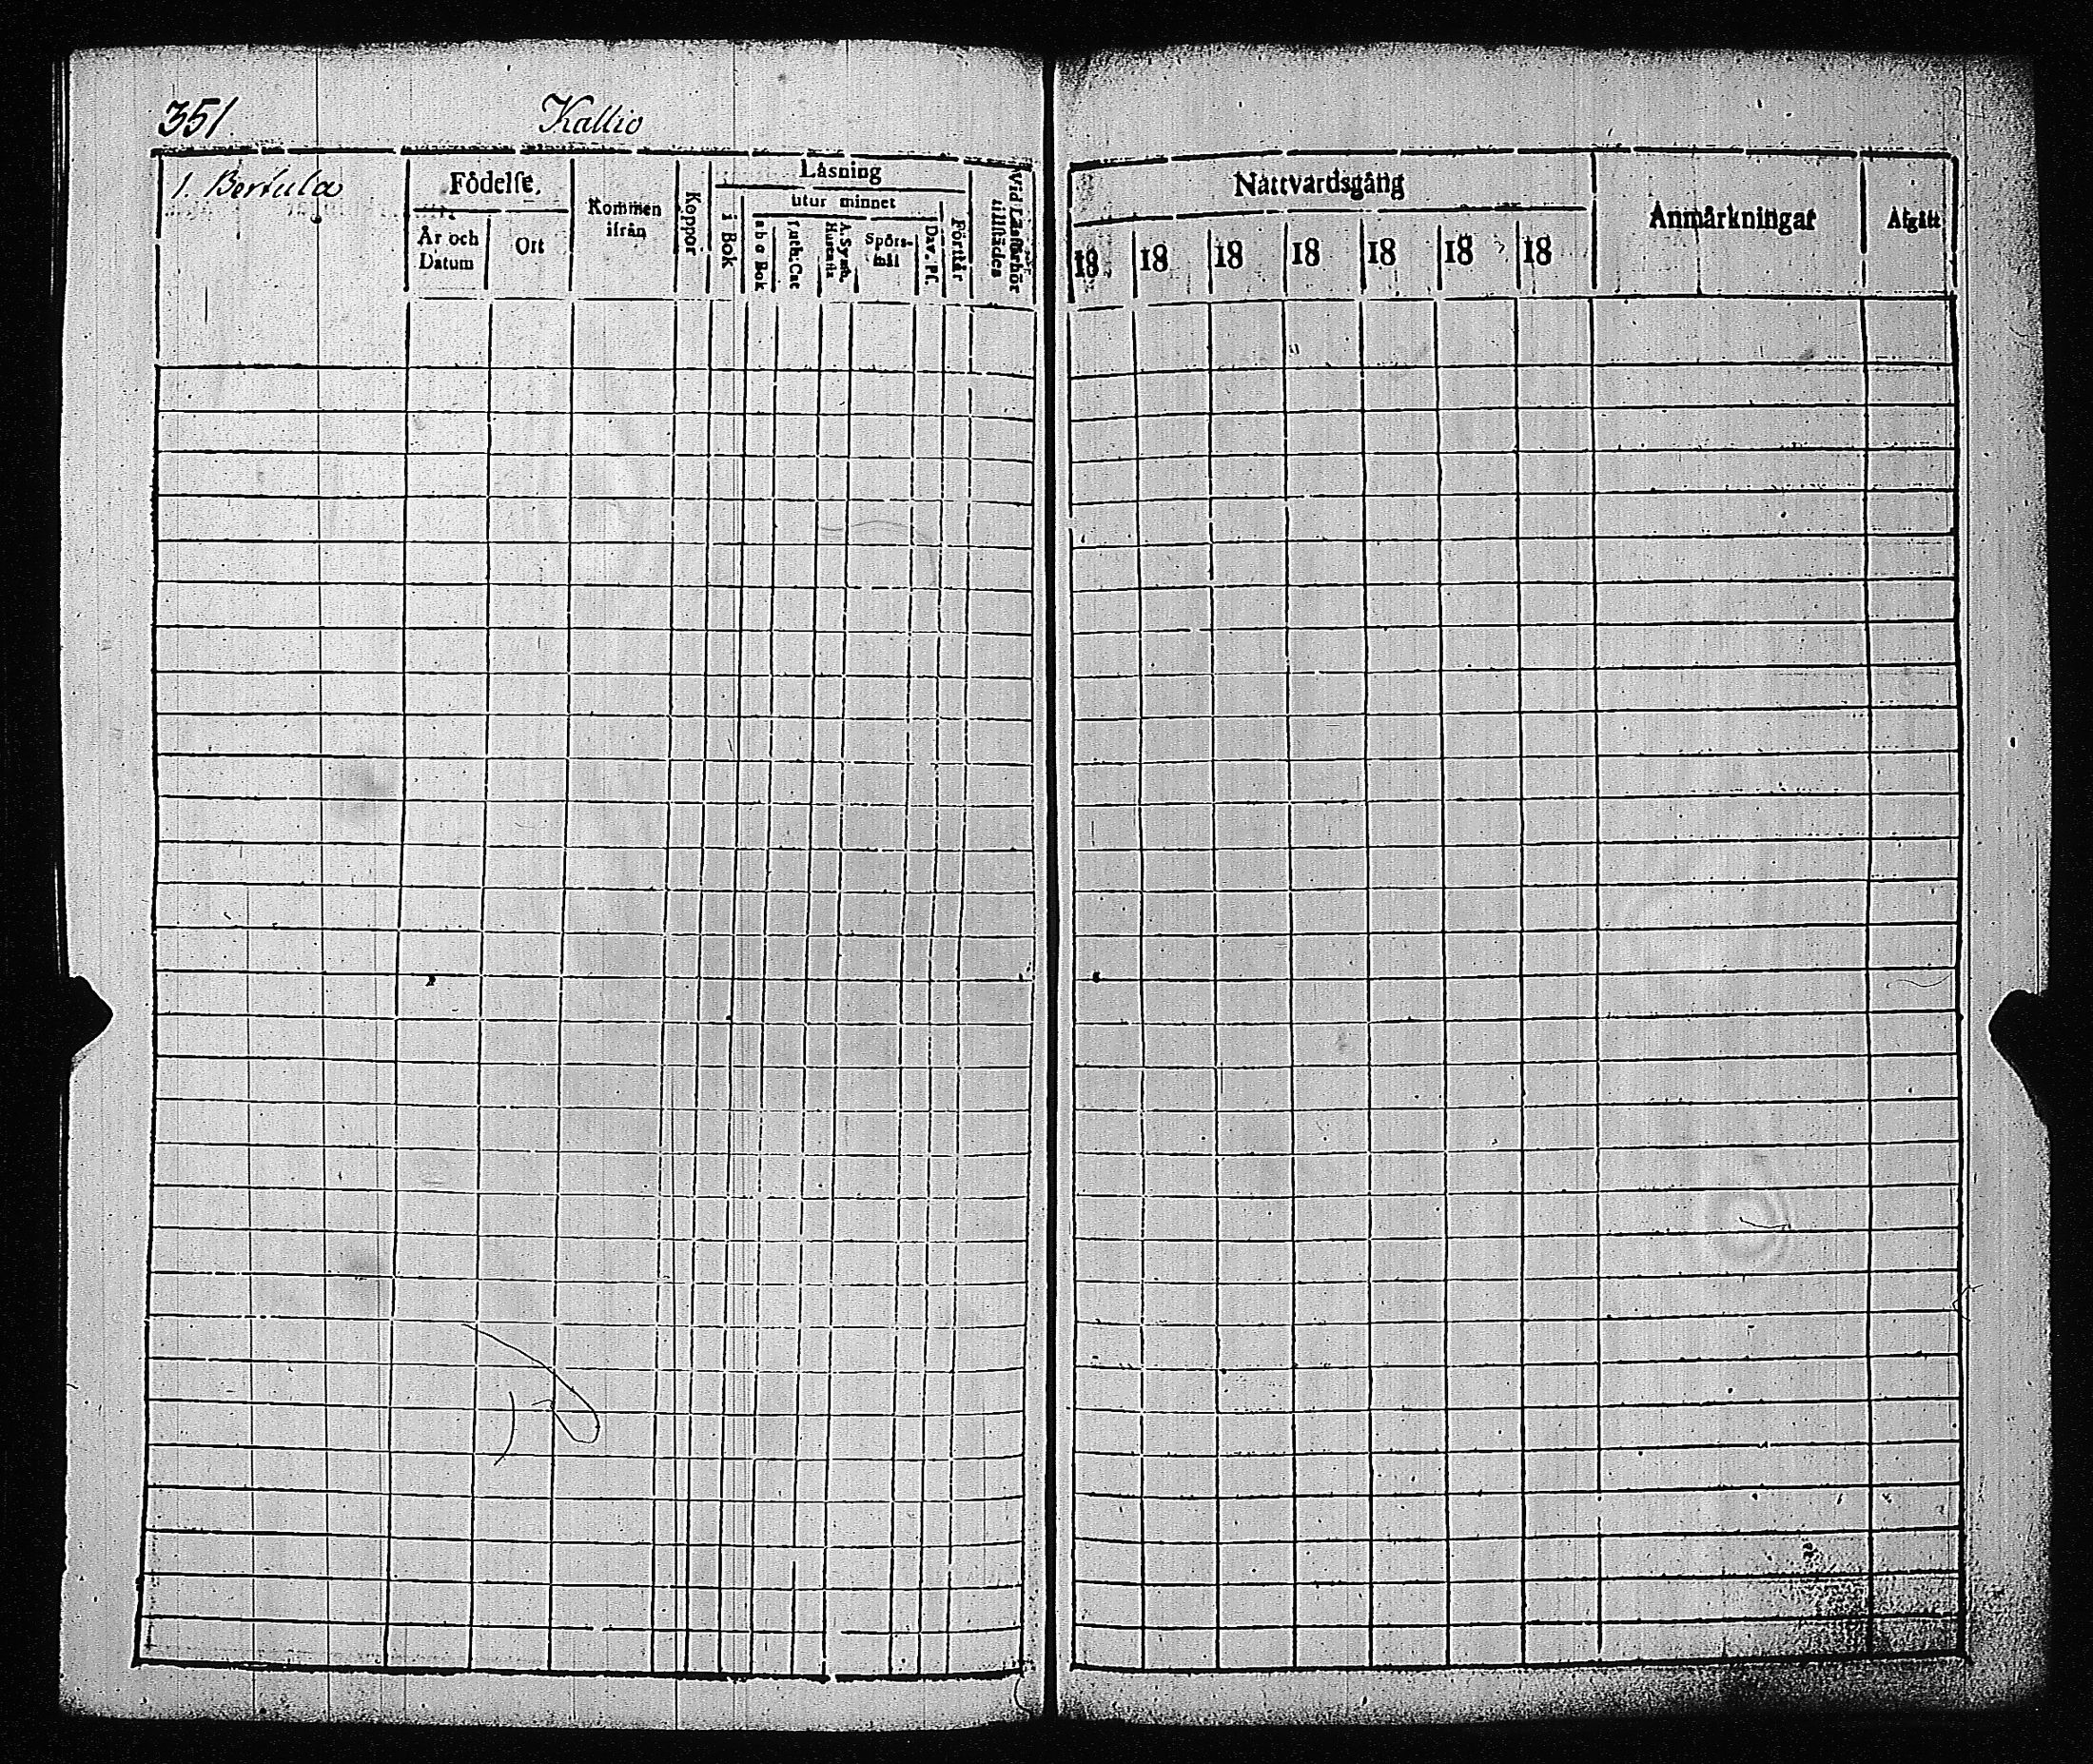 351 Kallio
1. Bertula
Födelse.
År och Datum
Ort
Kommen ifrån
Koppor
Läsning
i Bok
utur minnet
a b c Bok
Luth: Cat
A. Symb. Hustafla
Spörs-mål
Dav. Ps.
Förstår
Vid Läsförhör tillstädes
Nattvardsgång
18 18 18 18 18 18 18
Anmärkningar
Afgått